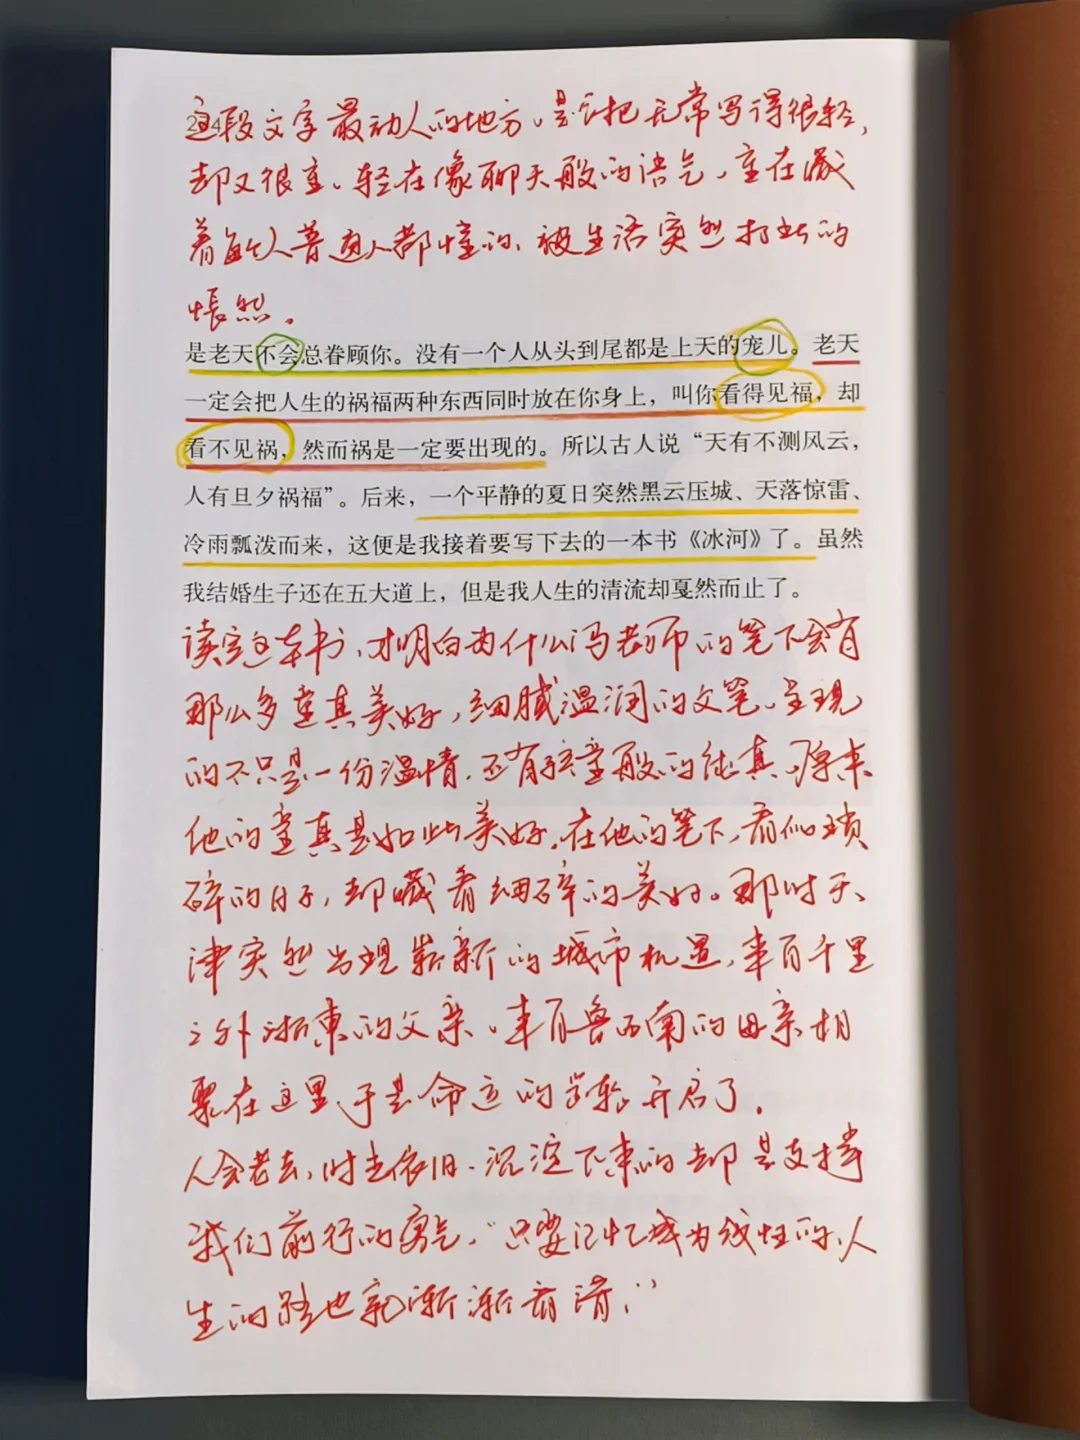 这段文字最动人的地方，是它把无常写得很轻，
却又很重。轻在像聊天般的语气，重在藏
着每个人普通人都懂的、被生活突然打断的
怅然。
是老天不会总眷顾你。没有一个人从头到尾都是上天的宠儿。老天
一定会把人生的祸福两种东西同时放在你身上，叫你看得见福，却
看不见祸，然而祸是一定要出现的。所以古人说“天有不测风云，
人有旦夕祸福”。后来，一个平静的夏日突然黑云压城、天落惊雷、
冷雨瓢泼而来，这便是我接着要写下去的一本书《冰河》了。虽然
我结婚生子还在五大道上，但是我人生的清流却戛然而止了。
读完这本书，才明白为什么冯老师的笔下会有
那么多童真美好，细腻温润的文笔，呈现
的不只是一份温情，还有孩童般的纯真。原来
他的童真是如此美好。在他的笔下，看似琐
碎的日子，却藏着细碎的美好。那时天
津突然出现崭新的城市机遇，来自千里
之外浙东的父亲，来自鲁西南的母亲相
聚在这里，于是命运的齿轮开启了。
人会老去，时光依旧，沉淀下来的却是支撑
我们前行的勇气，“只要记忆成为线性的，人
生的路也就渐渐看清。”